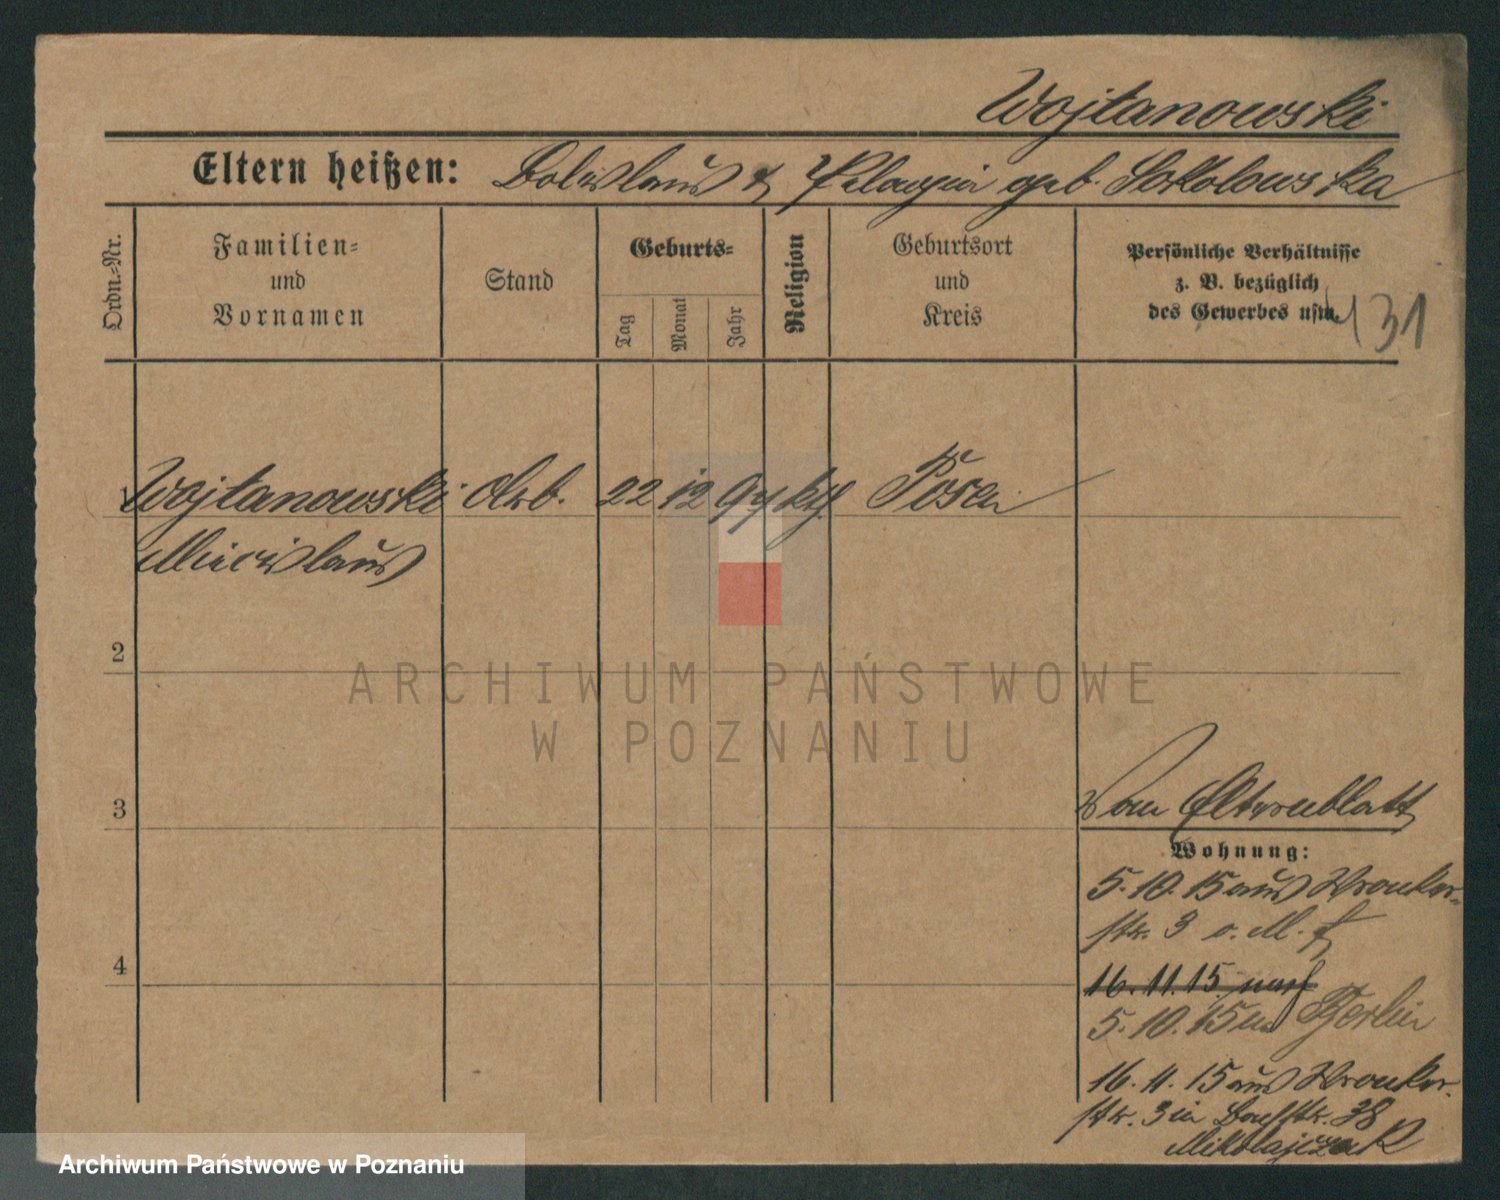 Wojtanowski
Eltern heißen: Boleslaus & Pelagia geb. Sokolowska
Ordn.-Nr.
Familien- und Vornamen
Stand
Geburts-
Tag
Monat
Jahr
Religion
Geburtsort und Kreis
Persönliche Verhältnisse
z. B. bezüglich
des Gewerbes usw.
131
1 Wojtanowski Arb. 22 12 97 kth. Posen
Miecislaus
2
3
4
vom Elternblatt
Wohnung:
5. 10. 15 aus Wronker-
str. 3
16. 11. 15 nach
5. 10. 15 Berlin
16. 11. 15 aus Wronker-
str. 3 in Bachstr. 38
Mikolajczak
ARCHIWUM PAŃSTWOWE
W POZNANIU
Archiwum Państwowe w Poznaniu